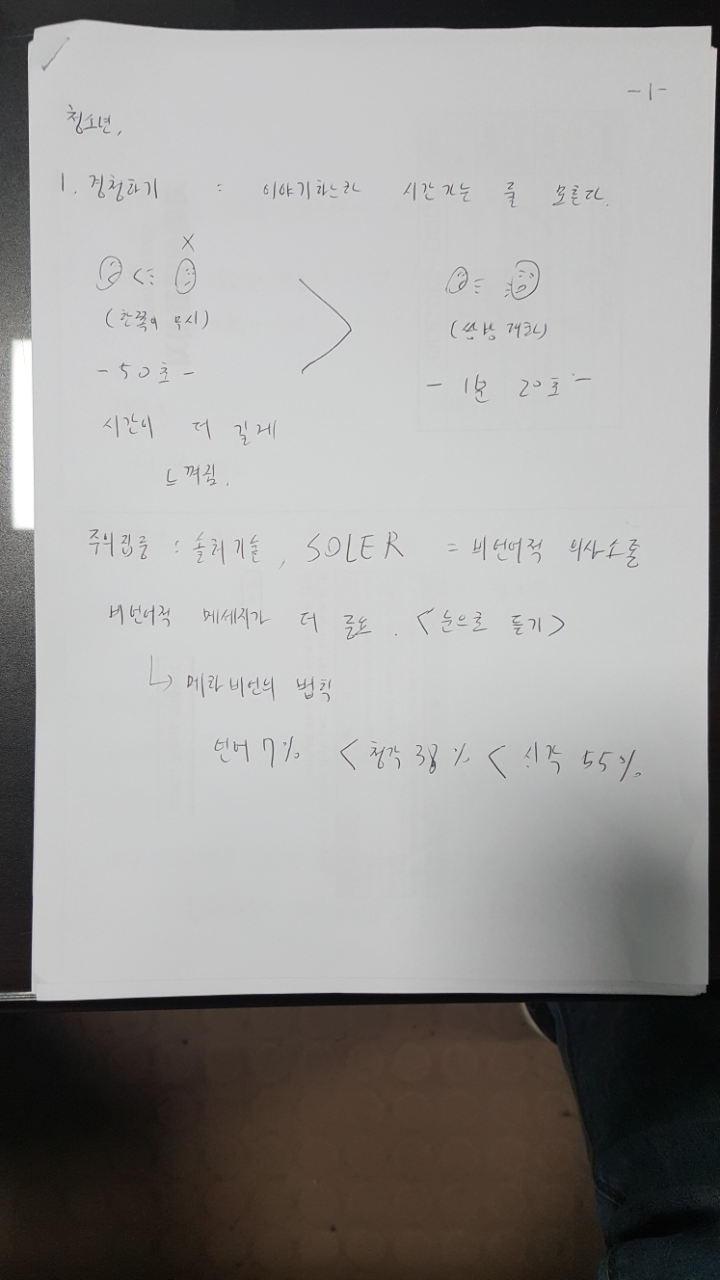 -1-
청소년,
1. 경청하기 : 이야기하느라 시간가는 줄 모른다.
X
(한쪽이 무시)
(쌍방 대화)
-50초-
- 1분 20초 -
시간이 더 길게
느껴짐.
주의집중 : 솔러기술, SOLER = 비언어적 의사소통
비언어적 메세지가 더 중요. <눈으로 듣기>
↳ 메라비언의 법칙
언어 7% < 청각 38% < 시각 55%